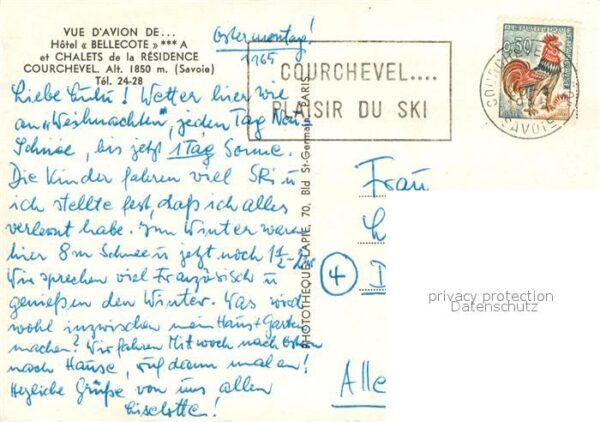 VUE D'AVION DE...
Hôtel « BELLECOTE » *** A
et CHALETS de la RÉSIDENCE
COURCHEVEL. Alt. 1850 m. (Savoie)
Tél. 24-28
Ostermontag!
1965
COURCHEVEL....
PLAISIR DU SKI
0,50
SAVOIE
Liebe! Wetter hier wie
an "Weihnachten", jeden Tag Neu
Schnee, bis jetzt 1 Tag Sonne.
Die Kinder fahren viel Ski u
ich stellte fest, daß ich alles
verlernt habe. Im Winter waren
hier 8 m Schnee u jetzt noch 1½-2 m
Wir sprechen viel Französisch u
genießen den Winter. Was wird
wohl inzwischen mein Haus + Garten
machen? Wir fahren Mittwoch nach Ostern
nach Hause, ruf dann mal an!
Herzliche Grüße von uns allen
Liselotte!
PHOTOTHEQUE LAPIE, 70, Bld St-Germain, PARIS
Frau
L
4 D
Alle
privacy protection
Datenschutz